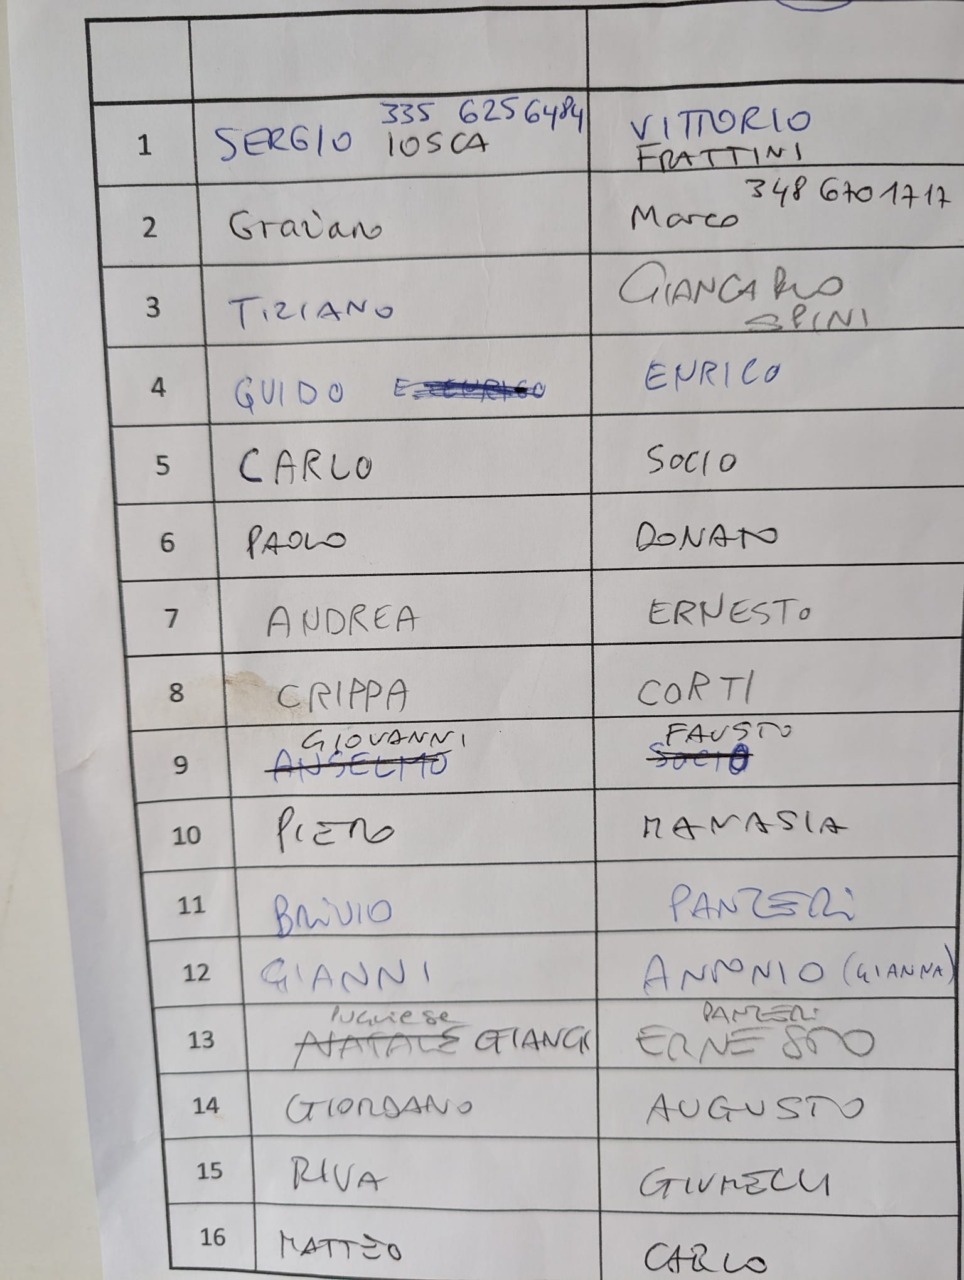 335 6256484
1 SERGIO IOSCA VITTORIO
FRATTINI
348 6701717
2 Graziano Marco
3 TIZIANO GIANCARLO
SPINI
4 GUIDO ENRICO
5 CARLO SOCIO
6 PAOLO DONATO
7 ANDREA ERNESTO
8 CRIPPA CORTI
GIOVANNI FAUSTO
9 ANSELMO SOCIO
10 PIERO MANASIA
11 BRIVIO PANZERI
12 GIANNI ANTONIO (GIANNA)
Pugliese PANZERI
13 NATALE GIANGI ERNESTO
14 GIORDANO AUGUSTO
15 RIVA
16 MATTEO CARLO